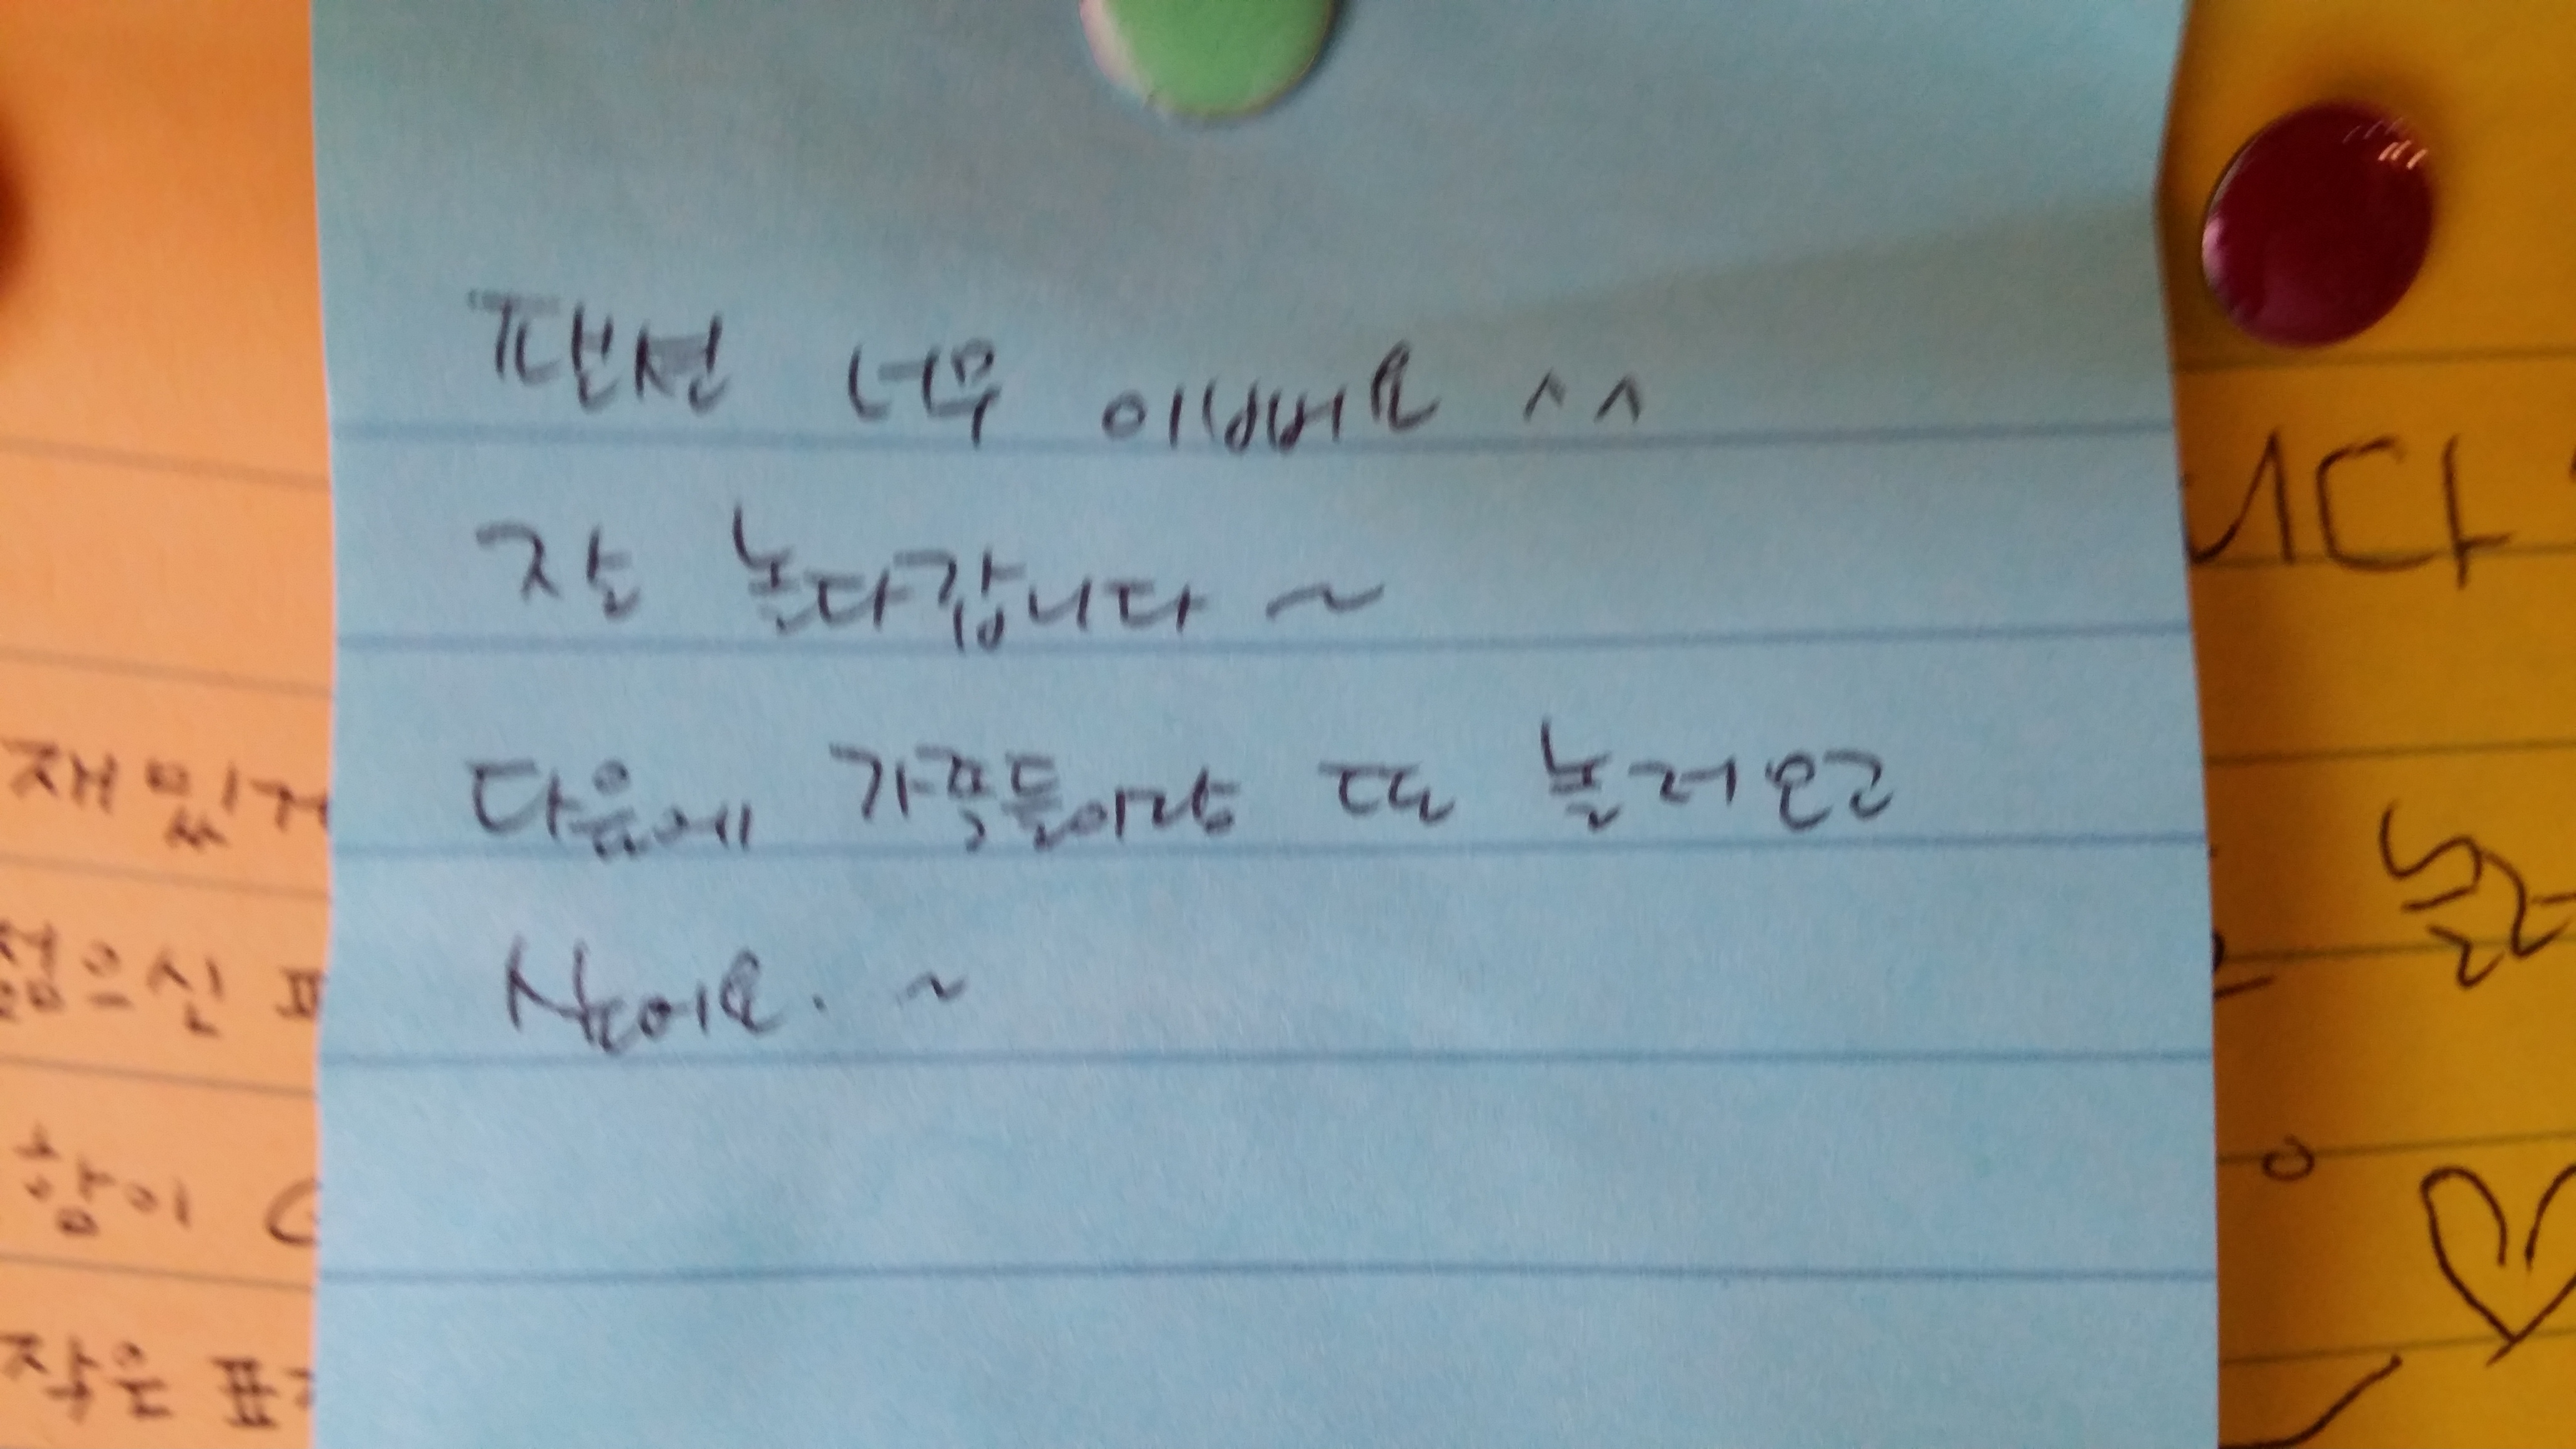 팬션 너무 이뻐요 ^^
잘 놀다갑니다 ~
다음에 가족들이랑 또 놀러오고
싶어요. ~
재밌게
젊으신
함이
작은
니다